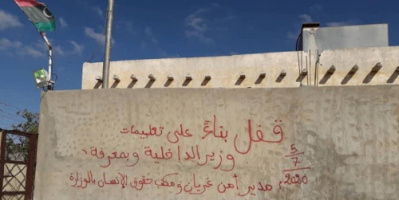 قفل بناءً على تعليمات
وزير الداخلية وبمعرفة،
مدير أمن غريان ومكتب حقوق الإنسان بالوزارة
5
7
2020